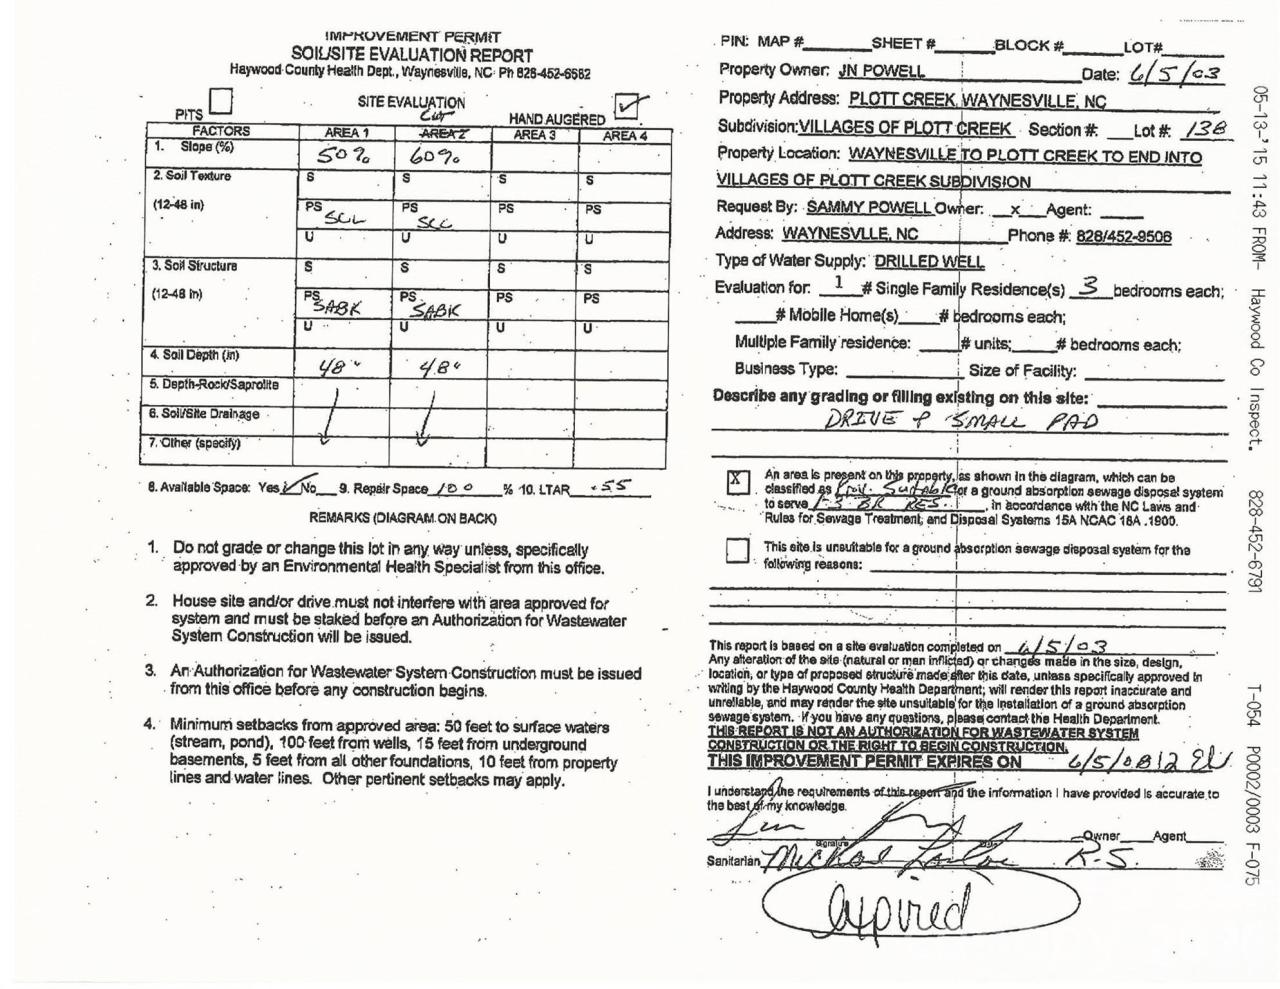 IMPROVEMENT PERMIT
SOIL/SITE EVALUATION REPORT
Haywood County Health Dept., Waynesville, NC Ph 828-452-6682
PITS
SITE EVALUATION
Cut
HAND AUGERED
FACTORS AREA 1 AREA 2 AREA 3 AREA 4
1. Slope (%) 50% 60%
2. Soil Texture S S S S
(12-48 in) PS SCL PS SCL PS PS
U U U U
3. Soil Structure S S S S
(12-48 in) PS SABK PS SABK PS PS
U U U U
4. Soil Depth (in) 48" 48"
5. Depth-Rock/Saprolite
6. Soil/Site Drainage
7. Other (specify)
8. Available Space: Yes No 9. Repair Space 100 % 10. LTAR .55
REMARKS (DIAGRAM ON BACK)
1. Do not grade or change this lot in any way unless, specifically
approved by an Environmental Health Specialist from this office.
2. House site and/or drive must not interfere with area approved for
system and must be staked before an Authorization for Wastewater
System Construction will be issued.
3. An Authorization for Wastewater System Construction must be issued
from this office before any construction begins.
4. Minimum setbacks from approved area: 50 feet to surface waters
(stream, pond), 100 feet from wells, 15 feet from underground
basements, 5 feet from all other foundations, 10 feet from property
lines and water lines. Other pertinent setbacks may apply.
PIN: MAP # SHEET # BLOCK # LOT#
Property Owner: JN POWELL Date: 6/5/03
Property Address: PLOTT CREEK WAYNESVILLE, NC
Subdivision: VILLAGES OF PLOTT CREEK Section #: Lot #: 138
Property Location: WAYNESVILLE TO PLOTT CREEK TO END INTO
VILLAGES OF PLOTT CREEK SUBDIVISION
Request By: SAMMY POWELL Owner: x Agent:
Address: WAYNESVLLE, NC Phone #: 828/452-9506
Type of Water Supply: DRILLED WELL
Evaluation for: 1 # Single Family Residence(s) 3 bedrooms each;
# Mobile Home(s) # bedrooms each;
Multiple Family residence: # units; # bedrooms each;
Business Type: Size of Facility:
Describe any grading or filling existing on this site:
DRIVE & SMALL PAD
X An area is present on this property, as shown in the diagram, which can be
classified as Prov. Suitable for a ground absorption sewage disposal system
to serve 1-3 BR RES. , in accordance with the NC Laws and
Rules for Sewage Treatment and Disposal Systems 15A NCAC 18A .1900.
This site is unsuitable for a ground absorption sewage disposal system for the
following reasons:
This report is based on a site evaluation completed on 6/5/03 .
Any alteration of the site (natural or man inflicted) or changes made in the size, design,
location, or type of proposed structure made after this date, unless specifically approved in
writing by the Haywood County Health Department; will render this report inaccurate and
unreliable, and may render the site unsuitable for the installation of a ground absorption
sewage system. If you have any questions, please contact the Health Department.
THIS REPORT IS NOT AN AUTHORIZATION FOR WASTEWATER SYSTEM
CONSTRUCTION OR THE RIGHT TO BEGIN CONSTRUCTION.
THIS IMPROVEMENT PERMIT EXPIRES ON 6/5/08
I understand the requirements of this report and the information I have provided is accurate to
the best of my knowledge.
Signature Owner Agent
Sanitarian Michael R.S.
expired
05-13-'15 11:43 FROM- Haywood Co Inspect. 828-452-6791 T-054 P0002/0003 F-075